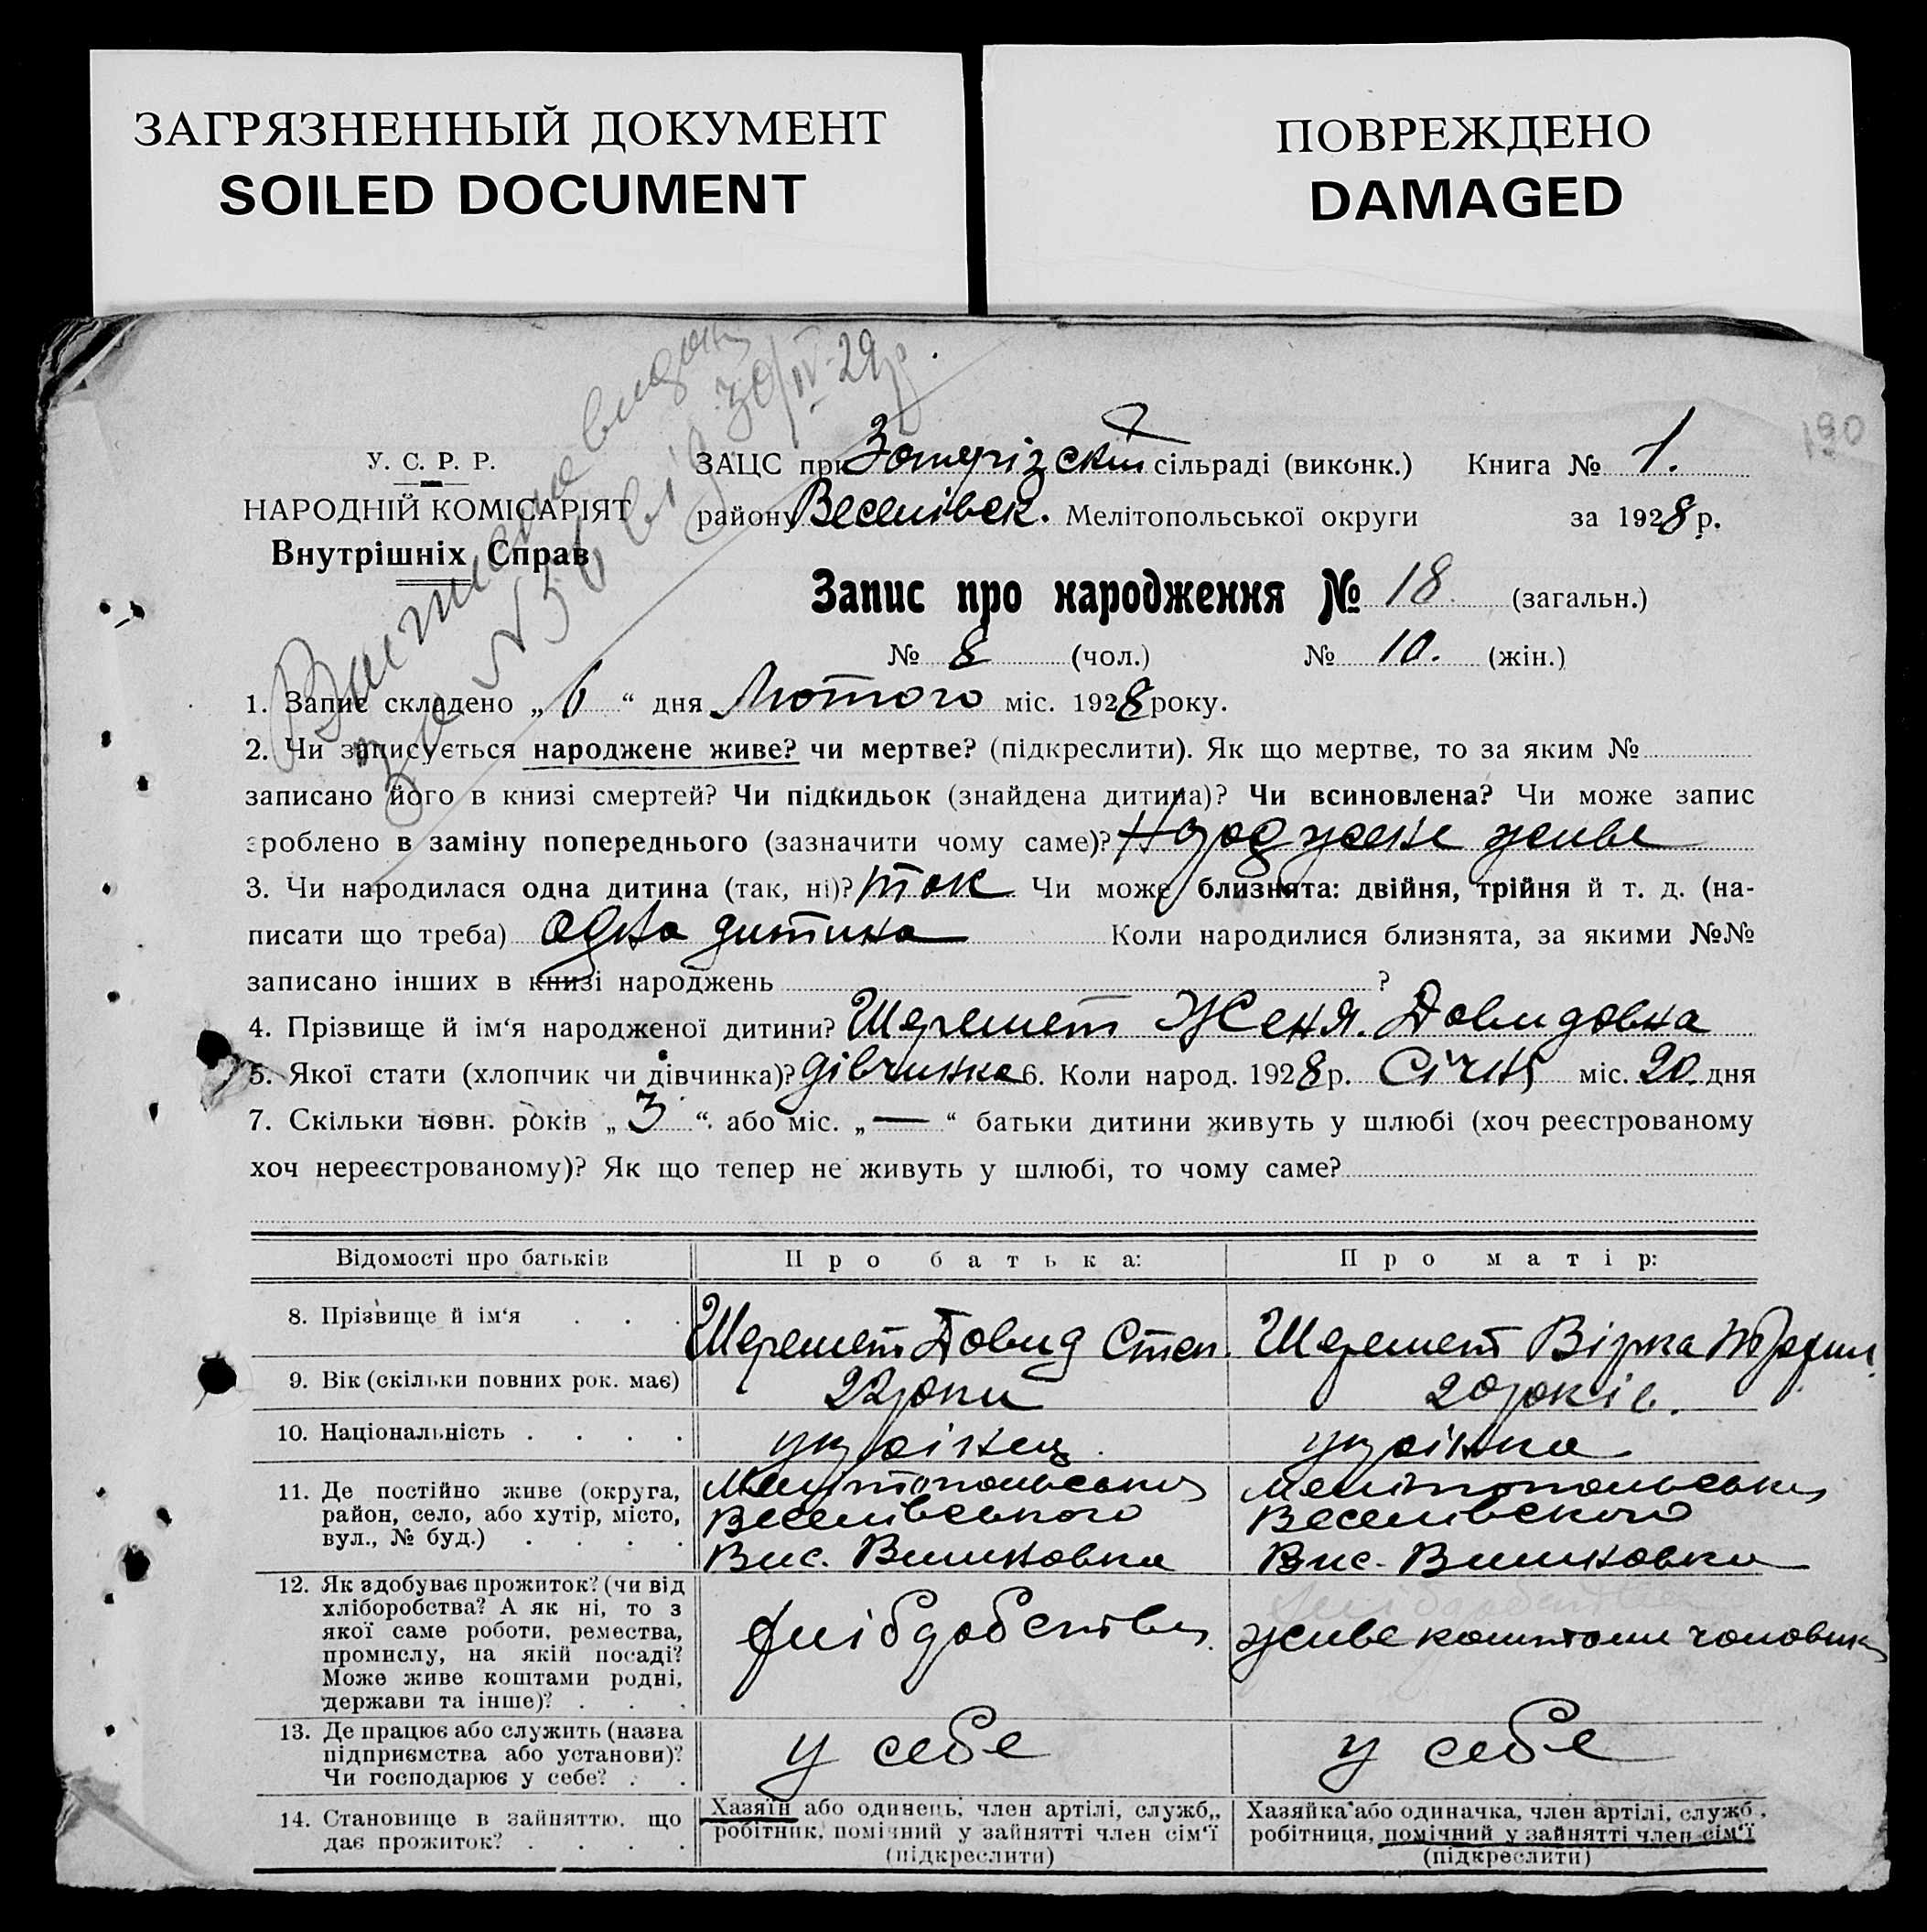 ЗАГРЯЗНЕННЫЙ ДОКУМЕНТ
SOILED DOCUMENT
ПОВРЕЖДЕНО
DAMAGED
30/IV-29р.
190
У. С. Р. Р.
НАРОДНІЙ КОМІСАРІЯТ
Внутрішніх Справ
ЗАЦС при сільраді (виконк.) Книга № 1.
району Веселівск. Мелітопольської округи за 1928 р.
Запис про народження № 18 (загальн.)
№ 8 (чол.) № 10. (жін.)
1. Запис складено „ 6 “ дня Лютого міс. 1928 року.
2. Чи записується народжене живе? чи мертве? (підкреслити). Як що мертве, то за яким №
записано його в книзі смертей? Чи підкидьок (знайдена дитина)? Чи всиновлена? Чи може запис
зроблено в заміну попереднього (зазначити чому саме)? Народжене живе
3. Чи народилася одна дитина (так, ні)? так Чи може близнята: двійня, трійня й т. д. (на-
писати що треба) одна дитина Коли народилися близнята, за якими №№
записано інших в книзі народжень ?
4. Прізвище й ім‘я народженої дитини? Шеремет Женя. Довидовна
5. Якої стати (хлопчик чи дівчинка)? дівчинка 6. Коли народ. 1928 р. Січня міс. 20. дня
7. Скільки повн. років „ 3 “ або міс. „ — “ батьки дитини живуть у шлюбі (хоч реєстрованому
хоч нереєстрованому)? Як що тепер не живуть у шлюбі, то чому саме?
Відомості про батьків Про батька: Про матір:
8. Прізвище й ім‘я . . . Шеремет Довид Степ. Шеремет Вірка
9. Вік (скільки повних рок. має) 22 роки 20 років.
10. Національність . . . . українец. українка
11. Де постійно живе (округа, район, село, або хутір, місто, вул., № буд.) . . . .
Мелітопольськ
Веселівського
Вис. Вишновка
Мелітопольськ
Веселівского
Вис. Вишновка
12. Як здобуває прожиток? (чи від
хліборобства? А як ні, то з
якої саме роботи, ремества,
промислу, на якій посаді?
Може живе коштами родні,
держави та інше)? . . .
живе коштами чоловика
13. Де працює або служить (назва
підприємства або установи)?
Чи господарює у себе? . .
у себе у себе
14. Становище в зайняттю, що
дає прожиток? . . . .
Хазяїн або одинець, член артілі, служб.,
робітник, помічний у зайнятті член сім‘ї
(підкреслити)
Хазяйка або одиначка, член артілі, служб.,
робітниця, помічний у зайнятті член сім‘ї
(підкреслити)